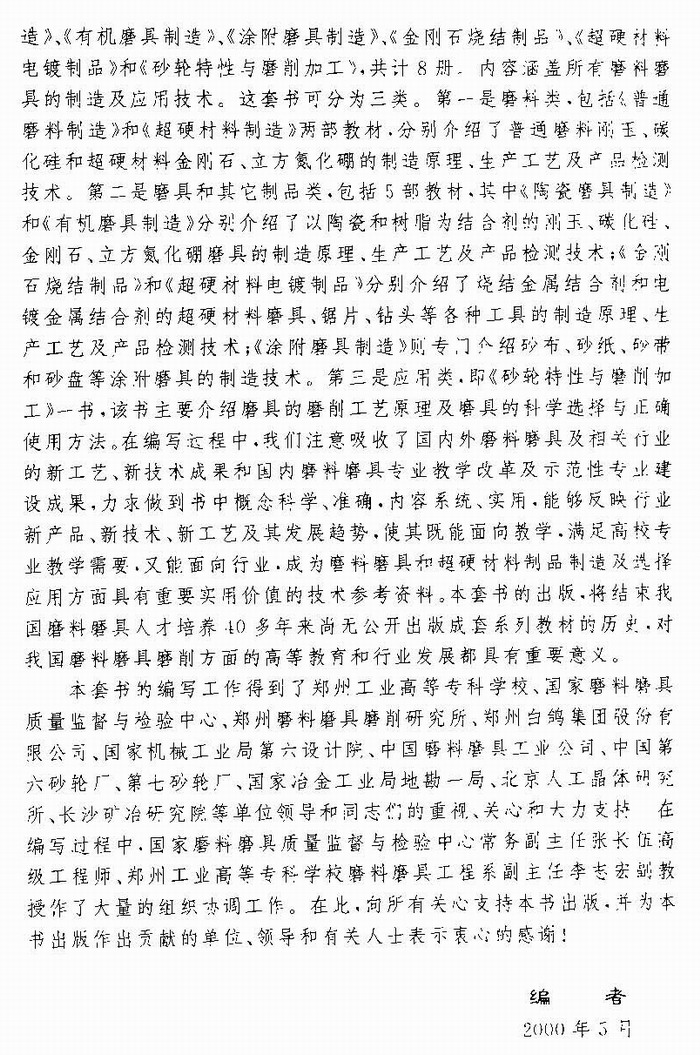 造》、《有机磨具制造》、《涂附磨具制造》、《金刚石烧结制品》、《超硬材料
电镀制品》和《砂轮特性与磨削加工》,共计8册。内容涵盖所有磨料磨
具的制造及应用技术。这套书可分为三类。第一是磨料类,包括《普通
磨料制造》和《超硬材料制造》两部教材,分别介绍了普通磨料刚玉、碳
化硅和超硬材料金刚石、立方氮化硼的制造原理、生产工艺及产品检测
技术。第二是磨具和其它制品类,包括5部教材,其中《陶瓷磨具制造》
和《有机磨具制造》分别介绍了以陶瓷和树脂为结合剂的刚玉、碳化硅、
金刚石、立方氮化硼磨具的制造原理、生产工艺及产品检测技术;《金刚
石烧结制品》和《超硬材料电镀制品》分别介绍了烧结金属结合剂和电
镀金属结合剂的超硬材料磨具、锯片、钻头等各种工具的制造原理、生
产工艺及产品检测技术;《涂附磨具制造》则专门介绍砂布、砂纸、砂带
和砂盘等涂附磨具的制造技术。第三是应用类,即《砂轮特性与磨削加
工》一书,该书主要介绍磨具的磨削工艺原理及磨具的科学选择与正确
使用方法。在编写过程中,我们注意吸收了国内外磨料磨具及相关行业
的新工艺、新技术成果和国内磨料磨具专业教学改革及示范性专业建
设成果,力求做到书中概念科学、准确,内容系统、实用,能够反映行业
新产品、新技术、新工艺及其发展趋势,使其既能面向教学,满足高校专
业教学需要,又能面向行业,成为磨料磨具和超硬材料制品制造及选择
应用方面具有重要实用价值的技术参考资料。本套书的出版,将结束我
国磨料磨具人才培养40多年来尚无公开出版成套系列教材的历史,对
我国磨料磨具磨削方面的高等教育和行业发展都具有重要意义。
本套书的编写工作得到了郑州工业高等专科学校、国家磨料磨具
质量监督与检验中心、郑州磨料磨具磨削研究所、郑州白鸽集团股份有
限公司、国家机械工业局第六设计院、中国磨料磨具工业公司、中国第
六砂轮厂、第七砂轮厂、国家冶金工业局地勘一局、北京人工晶体研究
所、长沙矿冶研究院等单位领导和同志们的重视、关心和大力支持 在
编写过程中,国家磨料磨具质量监督与检验中心常务副主任张长伍高
级工程师、郑州工业高等专科学校磨料磨具工程系副主任李志宏副教
授作了大量的组织协调工作。在此,向所有关心支持本书出版,并为本
书出版作出贡献的单位、领导和有关人士表示衷心的感谢!
编 者
2000年5月